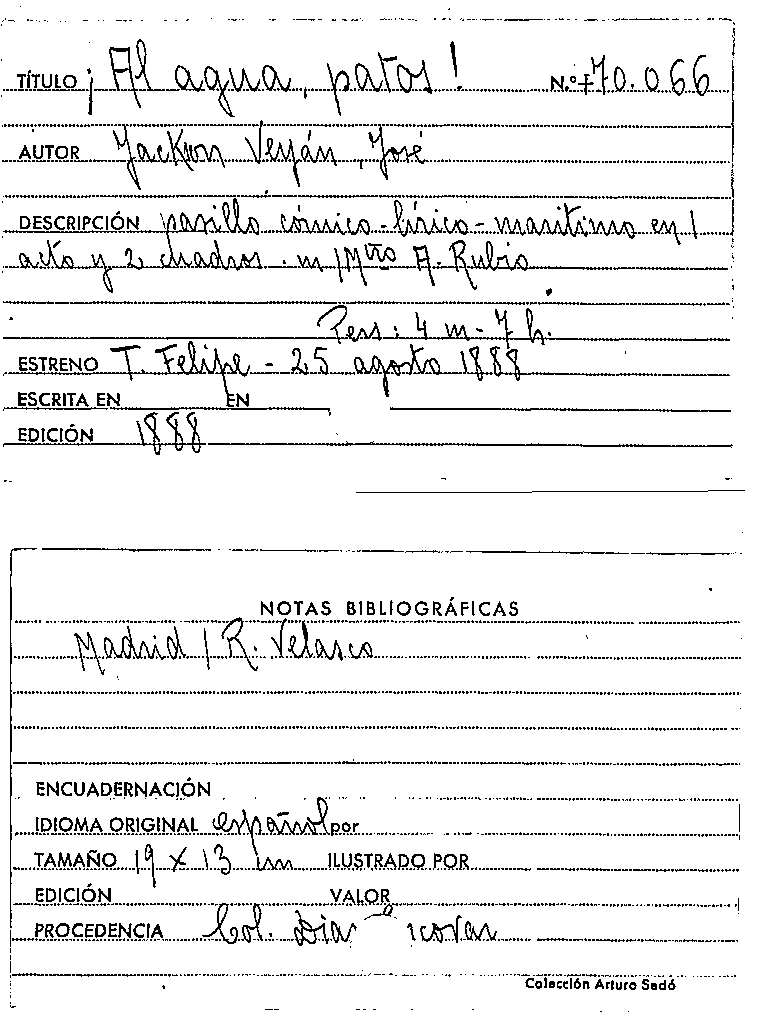 TÍTULO ¡Al agua, patos! N.º 70.066
AUTOR Jackson Veyán, José
DESCRIPCIÓN pasillo cómico-lírico-marítimo en 1
acto y 2 cuadros. m/Mtro A. Rubio
Pers: 4 m - 7 h.
ESTRENO T. Felipe - 25 agosto 1888
ESCRITA EN EN
EDICIÓN 1888
NOTAS BIBLIOGRÁFICAS
Madrid / R. Velasco
ENCUADERNACIÓN
IDIOMA ORIGINAL español por
TAMAÑO 19 x 13 cm ILUSTRADO POR
EDICIÓN VALOR
PROCEDENCIA Col.
Colección Arturo Sedó